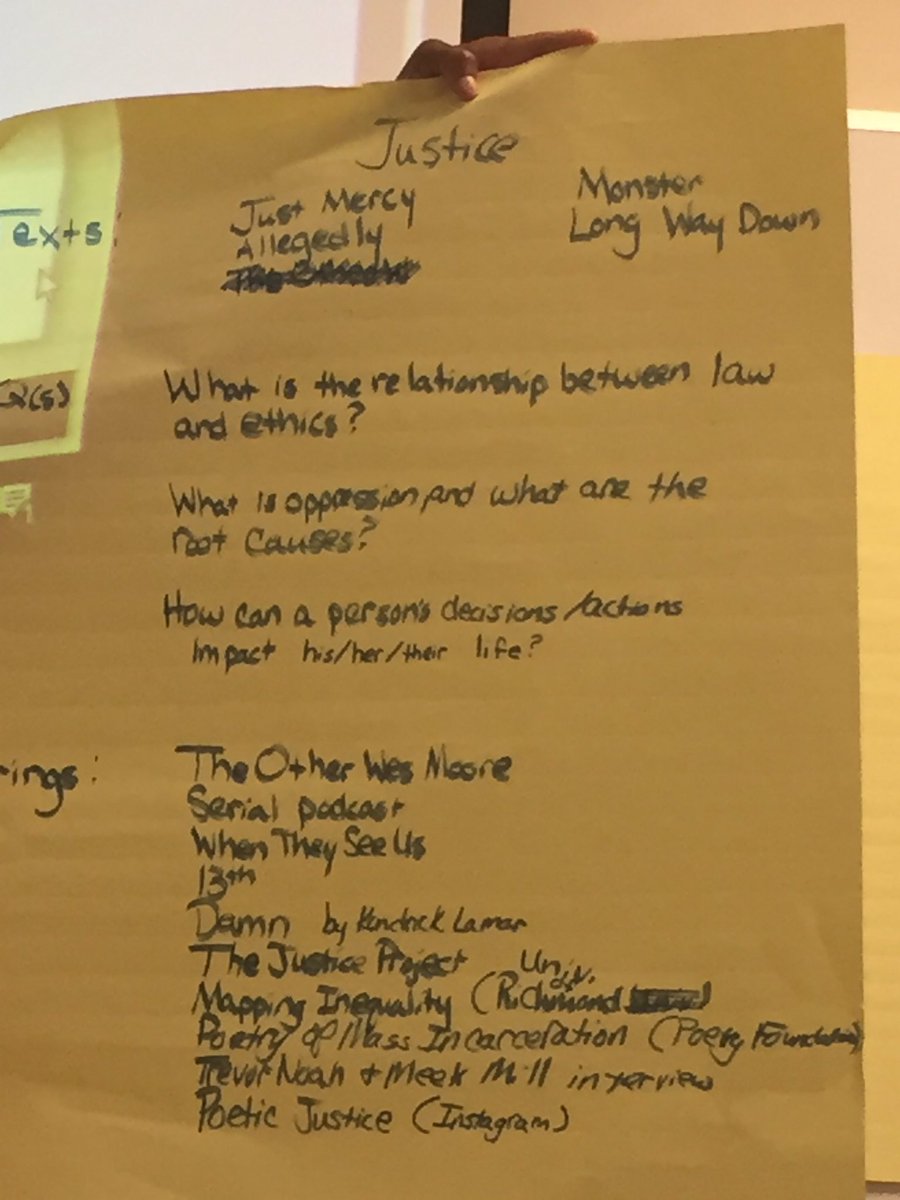 Justice
Texts:
Just Mercy
Allegedly
Monster
Long Way Down
Q(s)
What is the relationship between law
and ethics?
What is oppression, and what are the
root causes?
How can a person's decisions/actions
impact his/her/their life?
rings:
The Other Wes Moore
Serial podcast
When They See Us
13th
Damn by Kendrick Lamar
The Justice Project
Mapping Inequality (Univ. of Richmond)
Poetry of Mass Incarceration (Poery Foundation)
Trevor Noah + Meek Mill interview
Poetic Justice (Instagram)